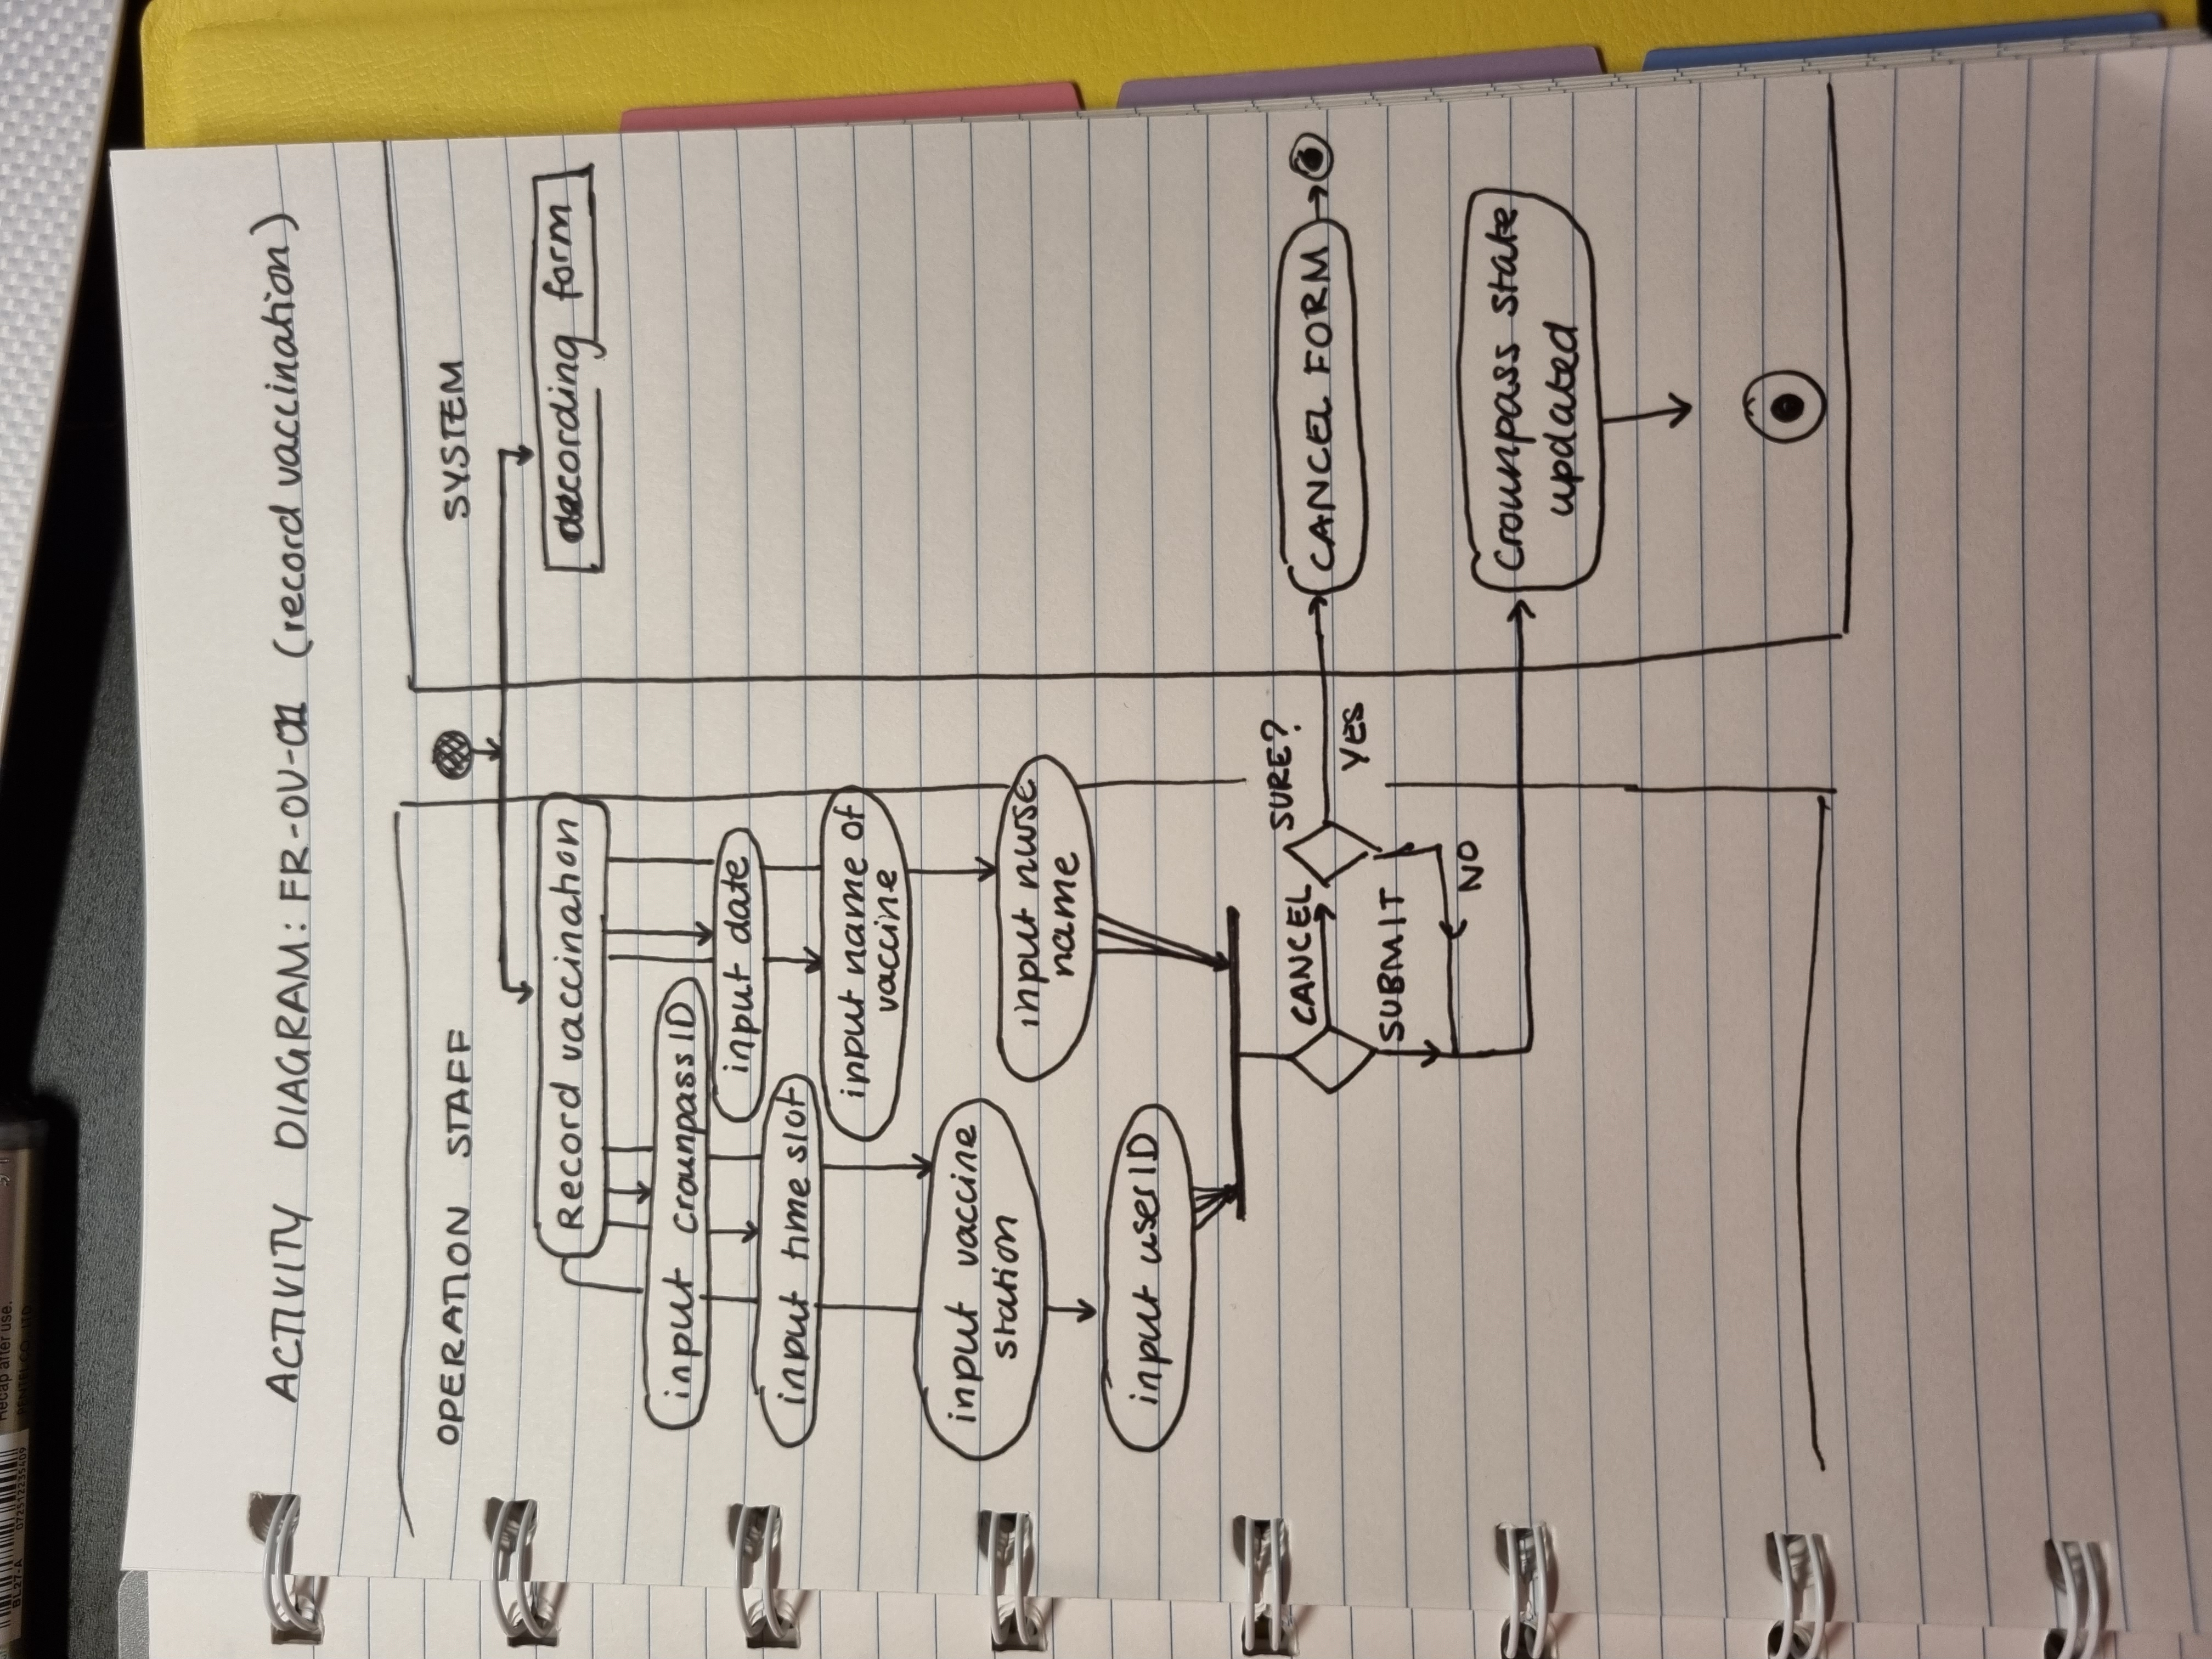 Recap after use.
BL27-A 072512235409
PENTEL CO., LTD.
ACTIVITY DIAGRAM: FR-OV-01 (record vaccination)
OPERATION STAFF
SYSTEM
Record vaccination
form
input crounpassID
input date
input time slot
input name of
vaccine
input vaccine
station
input nurse
name
input userID
CANCEL
SURE?
YES
CANCEL FORM
SUBMIT
NO
Crounpass state
updated